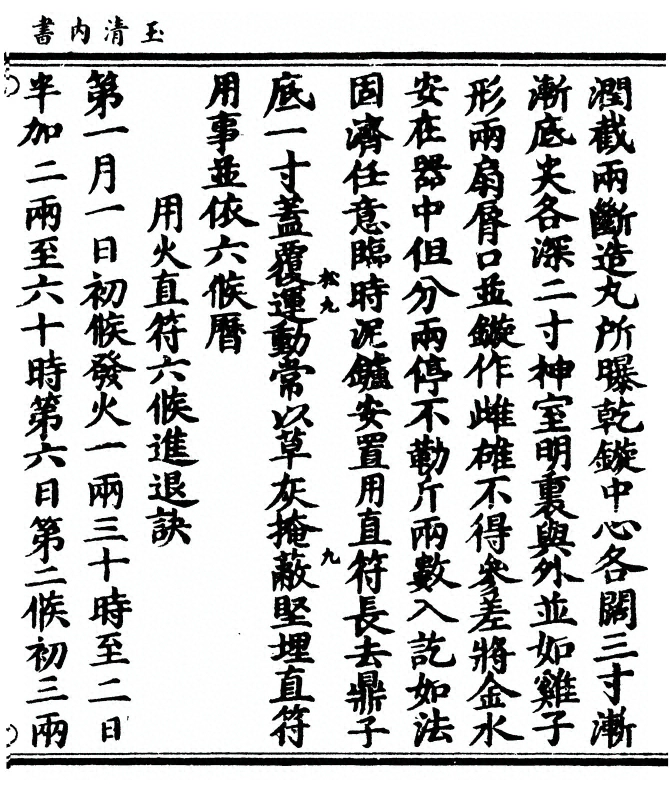 玉清内書
潤截兩斷造丸所曝乾鏇中心各闊三寸漸
漸底尖各深二寸神室明裏與外並如雞子
形兩扇脣口並鏇作雌雄不得參差將金水
安在器中但分兩停不勒斤兩數入訖如法
固濟任意臨時泥鑪安置用直符長去鼎子
底一寸蓋覆運動常以草灰掩蔽堅埋直符
松九
九
用事並依六候曆
用火直符六候進退訣
第一月一日初候發火一兩三十時至二日
半加二兩至六十時第六日第二候初三兩